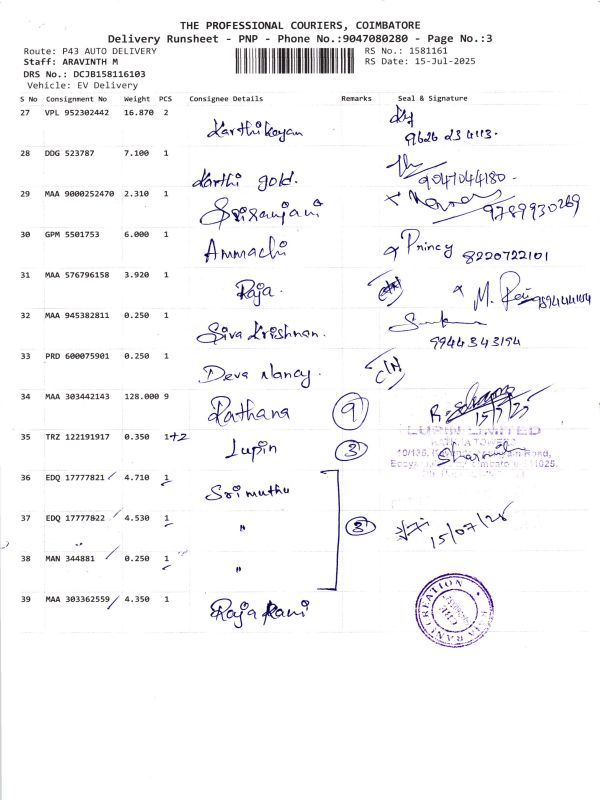 THE PROFESSIONAL COURIERS, COIMBATORE
Delivery Runsheet - PNP - Phone No.:9047080280 - Page No.:3
Route: P43 AUTO DELIVERY RS No.: 1581161
Staff: ARAVINTH M RS Date: 15-Jul-2025
DRS No.: DCJB158116103
Vehicle: EV Delivery
S No Consignment No Weight PCS Consignee Details Remarks Seal & Signature
27 VPL 952302442 16.870 2 Karthikeyan 9626 234113.
28 DDG 523787 7.100 1 Karthi gold. 9047044180
29 MAA 9000252470 2.310 1 Srisanjani 9789930269
30 GPM 5501753 6.000 1 Ammachi Princy 8220722101
31 MAA 576796158 3.920 1 Raja.
32 MAA 945382811 0.250 1 Siva Krishnan. 9944343194
33 PRD 600075901 0.250 1 Deva Nancy.
34 MAA 303442143 128.000 9 Rathana 9 15/7/25
35 TRZ 122191917 0.350 1+2 Lupin 3
LUPIN LIMITED
36 EDQ 17777821 4.710 1 Sri muthu
37 EDQ 17777822 4.530 1 " 3 15/07/25
38 MAN 344881 0.250 1 "
39 MAA 303362559 4.350 1 Raja Rani
RAJA RANI CREATION
CBE